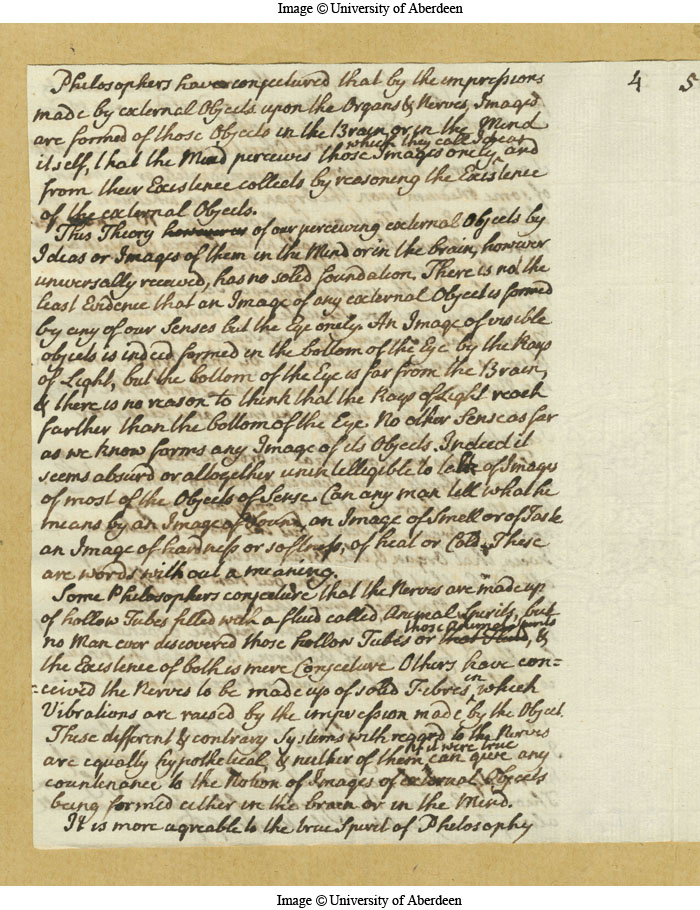 Image © University of Aberdeen
4 5
Philosophers have conjectured that by the impressions
made by external Objects upon the Organs & Nerves, Images
are formed of those Objects in the Brain, or in the Mind
which they call Ideas
itself, that the Mind perceives those Images onely, and
from their Existence collects by reasoning the Existence
of the external Objects.
This Theory however of our perceiving external Objects by
Ideas or Images of them in the Mind or in the brain, however
universally received, has no solid foundation. There is not the
least Evidence that an Image of any external Object is formed
by any of our Senses but the Eye onely. An Image of visible
objects is indeed formed in the bottom of the Eye by the Rays
of Light, but the bottom of the Eye is far from the Brain,
& there is no reason to think that the Rays of Light reach
farther than the bottom of the Eye. No other Sense as far
as we know forms any Image of its Objects. Indeed it
seems absurd or altogether unintelligible to talk of Images
of most of the Objects of Sense. Can any man tell what he
means by an Image of Sound, an Image of Smell or of Taste
an Image of hardness or softness, of heat or Cold. These
are words without a meaning.
Some Philosophers conjecture that the Nerves are made up
of hollow Tubes filled with a fluid called Animal Spirits, but
those Animal Spirits
no Man ever discovered those hollow Tubes or that Fluid, &
the Existence of both is mere Conjecture. Others have con=
=ceived the Nerves to be made up of solid Fibres in which
Vibrations are raised by the impression made by the Object.
These different & contrary Systems with regard to the Nerves
if it were true
are equally hypothetical, & neither of them can give any
countenance to the Notion of Images of external Objects
being formed either in the brain or in the Mind.
It is more agreable to the true Spirit of Philosophy
Image © University of Aberdeen